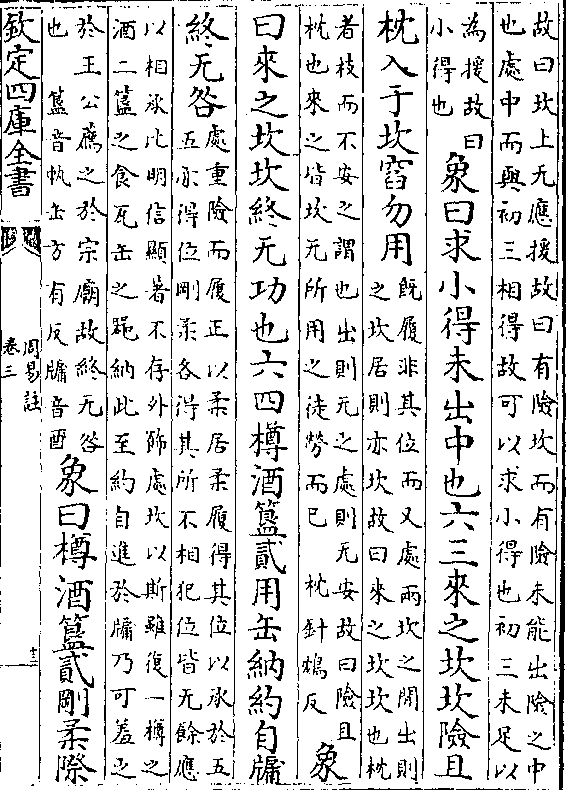 故曰坎上无應援故曰有險坎而有險未能出險之中
也處中而與初三相得故可以求小得也初三未足以
為援故曰
小得也
象曰求小得未出中也六三來之坎坎險且
枕入于坎窞勿用
既履非其位而又處兩坎之閒出則
之坎居則亦坎故曰來之坎坎也枕
者枝而不安之謂也出則无之處則无安故曰險且
枕也來之皆坎无所用之徒勞而已　枕針鴆反
象
曰來之坎坎終无功也六四樽酒簋貳用缶納約自牖
終无咎
處重險而履正以柔居柔履得其位以承於五
五亦得位剛柔各得其所不相犯位皆无餘應
以相承比明信顯著不存外飾處坎以斯雖復一樽之
酒二簋之食瓦缶之器納此至約自進於牖乃可羞之
於王公薦之於宗廟故終无咎
也　簋音軌缶方有反牖音酉
象曰樽酒簋貳剛柔際
欽定四庫全書
周易註
卷三
十三